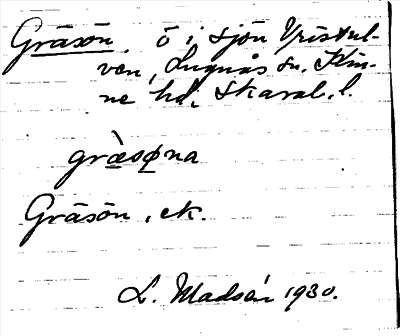 Gräsön, ö i sjön Yristul-
ven, Lugnås sn. Kin-
ne hd, Skarab. l.
græsøna
Gräsön, ek.
L. Madsén 1930.